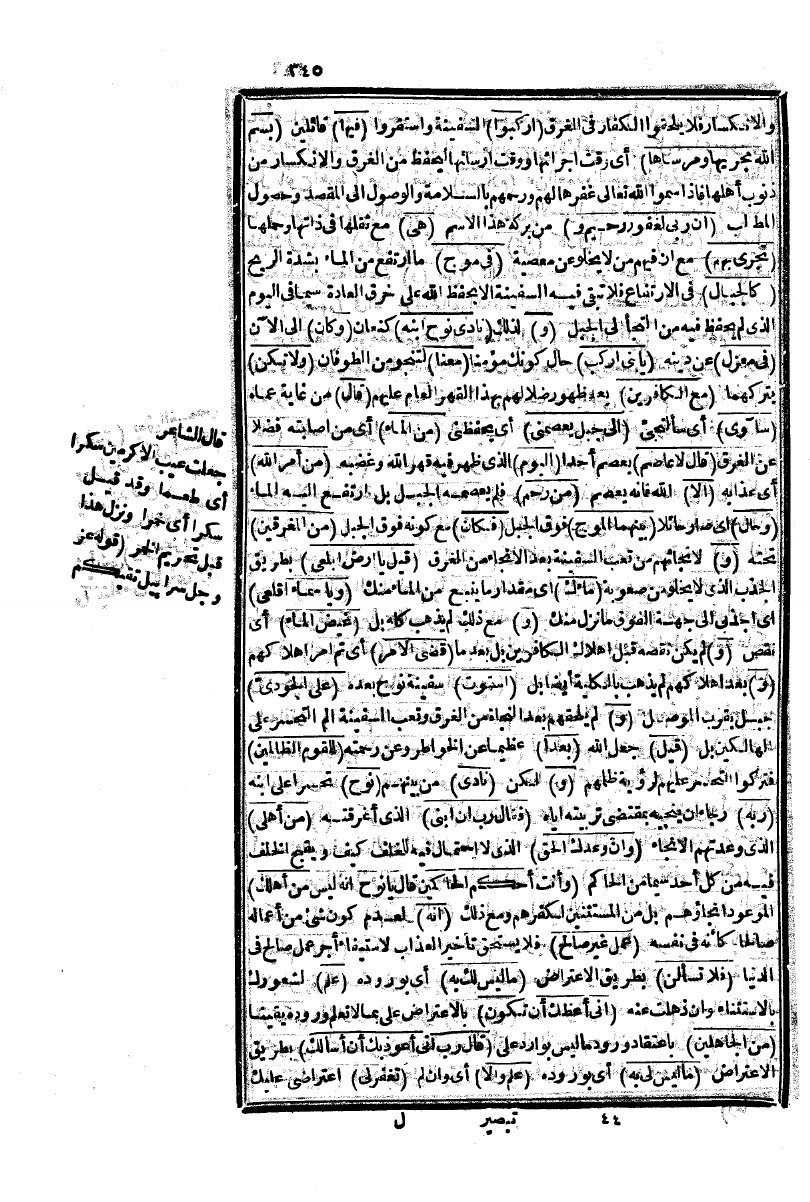 ٣٤٥
والانكسار فلا يلحقوا الكفار فى الغرق (اركبوا) السفينة واستقروا (فيها) قائلين (بسم
الله مجريها ومرساها) أى وقت اجرائها ووقت ارسائها ليحفظ من الغرق والانكسار من
ذنوب أهلها فاذا سموا الله تعالى غفرها لهم ورحمهم بالسلامة والوصول الى المقصد وحصول
المطالب (ان ربى لغفور رحيم و) من بركة هذا الاسم (هى) مع ثقلها فى ذاتها وحملها
(تجرى بهم) مع ان فيهم من لا يخلو عن معصية (فى موج) ما ارتفع من الماء بشدة الريح
(كالجبال) فى الارتفاع فلا تبقى فيه السفينة الا بحفظ الله على خرق العادة سيما فى اليوم
الذى لم يحفظ فيه من التجأ الى الجبل (و) لذلك (نادى نوح ابنه) كنعان (وكان) الى الآن
(فى معزل) عن دينه (يا بنى اركب) حال كونك مؤمنا (معنا) لتنجو من الطوفان (ولا تكن)
بتركهما (مع الكافرين) بعد ظهور ضلالهم بهذا القهر العام عليهم (قال) من غاية عماه
(سآوى) أى سألتجئ (الى جبل يعصمنى) أى يحفظنى (من الماء) أى من اصابته فضلا
عن الغرق (قال لا عاصم) يعصم أحدا (اليوم) الذى ظهر فيه قهر الله وغضبه (من أمر الله)
أى عذابه (الا) الله فانه يعصم (من رحم) فلم يعصمه الجبل بل ارتفع اليه الماء
(وحال) أى صار حائلا (بينهما الموج) فوق الجبل (فكان) مع كونه فوق الجبل (من المغرقين)
تحته (و) لانجائهم من تعب السفينة بعد الانجاء من الغرق (قيل يا ارض ابلعى) بطريق
الجذب الذى لا يخلو من صعوبة (ماءك) اى مقدار ما ينبع من الماء منك (ويا سماء اقلعى)
اى اجذبى الى جهة الفوق ما نزل منك (و) مع ذلك لم يذهب كله بل (غيض الماء) أى
نقص (و) لم يكن نقصه قبل اهلاك الكافرين بل بعد ما (قضى الامر) أى تم امر اهلاكهم
(و) بعد اهلاكهم لم يذهب بالكلية أيضا بل (استوت) سفينة نوح بعده (على الجودى)
جبل بقرب الموصل (و) لم يلحقهم بعد النجاة من الغرق وتعب السفينة الم التحسر على
الهالكين بل (قيل) جعل الله (بعدا) عظيما عن الخواطر وعن رحمته (للقوم الظالمين)
فتركوا التحسر عليهم لرؤية ظلمهم (و) لكن (نادى) من بينهم (نوح) تحسرا على ابنه
(ربه) رجاء ان ينجيه بمقتضى تربيته اياه (فقال رب ان ابنى) الذى أغرقته (من أهلى)
الذى وعدتهم الانجاء (وان وعدك الحق) الذى لا احتمال فيه للخلف كيف ويقبح الخلف
فيه من كل أحد سيما من الحاكم (وأنت أحكم الحاكمين قال يا نوح انه ليس من أهلك)
الموعود انجاؤهم بل من المستثنين لكفرهم ومع ذلك (انه) لعدم كون شئ من أعماله
صالحا كأنه فى نفسه (عمل غير صالح) فلا يستحق تأخير العذاب لاستيفاء أجر عمل صالح فى
الدنيا (فلا تسألن) بطريق الاعتراض (ما ليس لك به) أى بوروده (علم) لشعورك
بالاستثناء وان ذهلت عنه (انى أعظك أن تكون) بالاعتراض على بما لا تعلم وروده يقينا
(من الجاهلين) باعتقاد ورود ما ليس بوارد على (قال رب انى أعوذ بك أن أسألك) بطريق
الاعتراض (ما ليس لى به) أى بوروده (علم والا) أى وان لم (تغفر لى) اعتراضى عليك
قال الشاعر
جعلت عيب الاكرمين سكرا
أى طعما وقد قيل
سكرا أى خمرا ونزل هذا
قبل تحريم الخمر (قوله عز
وجل سرابيل تقيكم
٤٤ تبصير ل